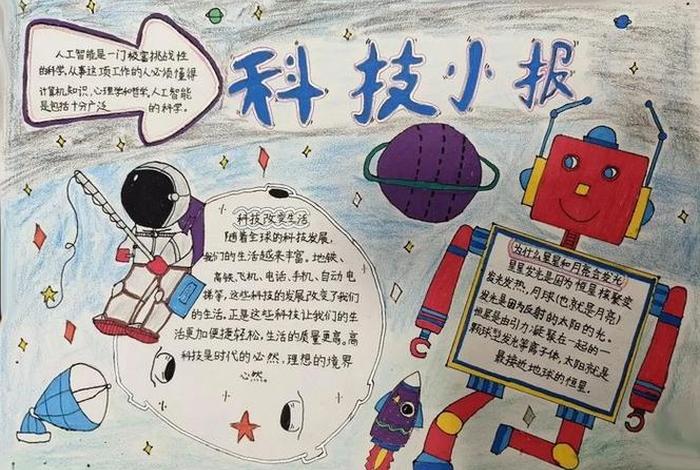 科技小报
人工智能是一门极富挑战性
的科学,从事这项工作的人必须懂得
计算机知识,心理学和哲学,人工智能
是包括十分广泛的科学。
科技改变生活
随着全球的科技发展,
我们的生活越来丰富。地铁、
高铁、飞机、电话、手机、自动电
梯等,这些科技的发展改变了我们
的生活。正是这些科技让我们的生
活更加便捷轻松,生活的质量更高。高
科技是时代的必然,理想的境界
必然。
为什么星星和月亮会发光
星星发光是因为恒星核聚变
发光发热,月球(也就是月亮)
发光是因为反射的太阳的光。
恒星是由引力凝聚在一起的一
颗球型发光等离子体,太阳就是
最接近地球的恒星。